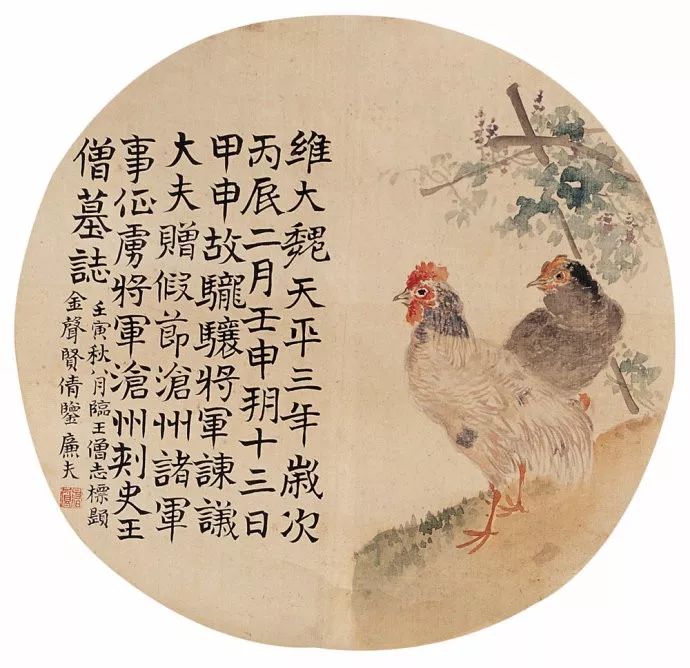 維大魏天平三年歲次
丙辰二月壬申朔十三日
甲申故䮾驤將軍諫議
大夫贈假節滄州諸軍
事征虜將軍滄州刺史王
僧墓誌
壬寅秋八月臨王僧志標題
金聲賢倩鑒 廉夫